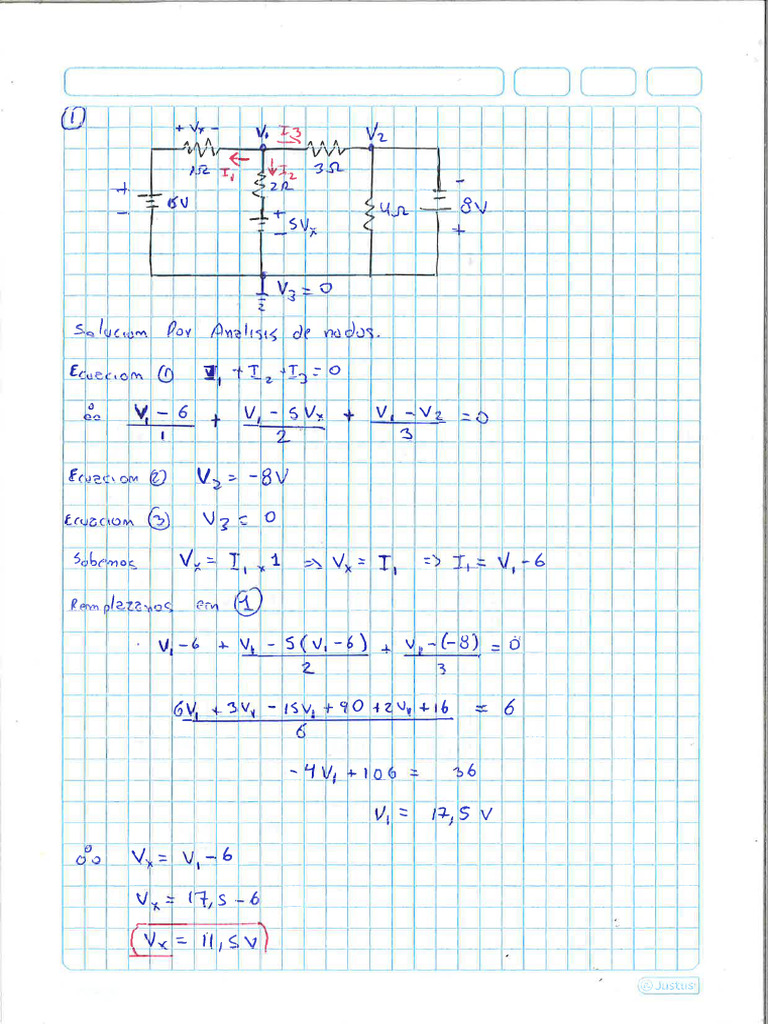 1
+ Vx - V1 I3 V2
1Ω I1 I2 3Ω
2Ω
+ - 4Ω 8V
- + 5Vx - +
V3 = 0
Solucion Por Analisis de nodos.
Ecuacion ① I1 + I2 + I3 = 0
∴ (V1 - 6)/1 + (V1 - 5Vx)/2 + (V1 - V2)/3 = 0
Ecuacion ② V2 = -8V
Ecuacion ③ V3 = 0
Sabemos Vx = I1 x 1 => Vx = I1 => I1 = V1 - 6
Remplazamos em ①
V1 - 6 + (V1 - 5(V1 - 6))/2 + (V1 - (-8))/3 = 0
(6V1 + 3V1 - 15V1 + 90 + 2V1 + 16)/6 = 6
-4V1 + 106 = 36
V1 = 17,5 V
∴ Vx = V1 - 6
Vx = 17,5 - 6
Vx = 11,5V
Justus